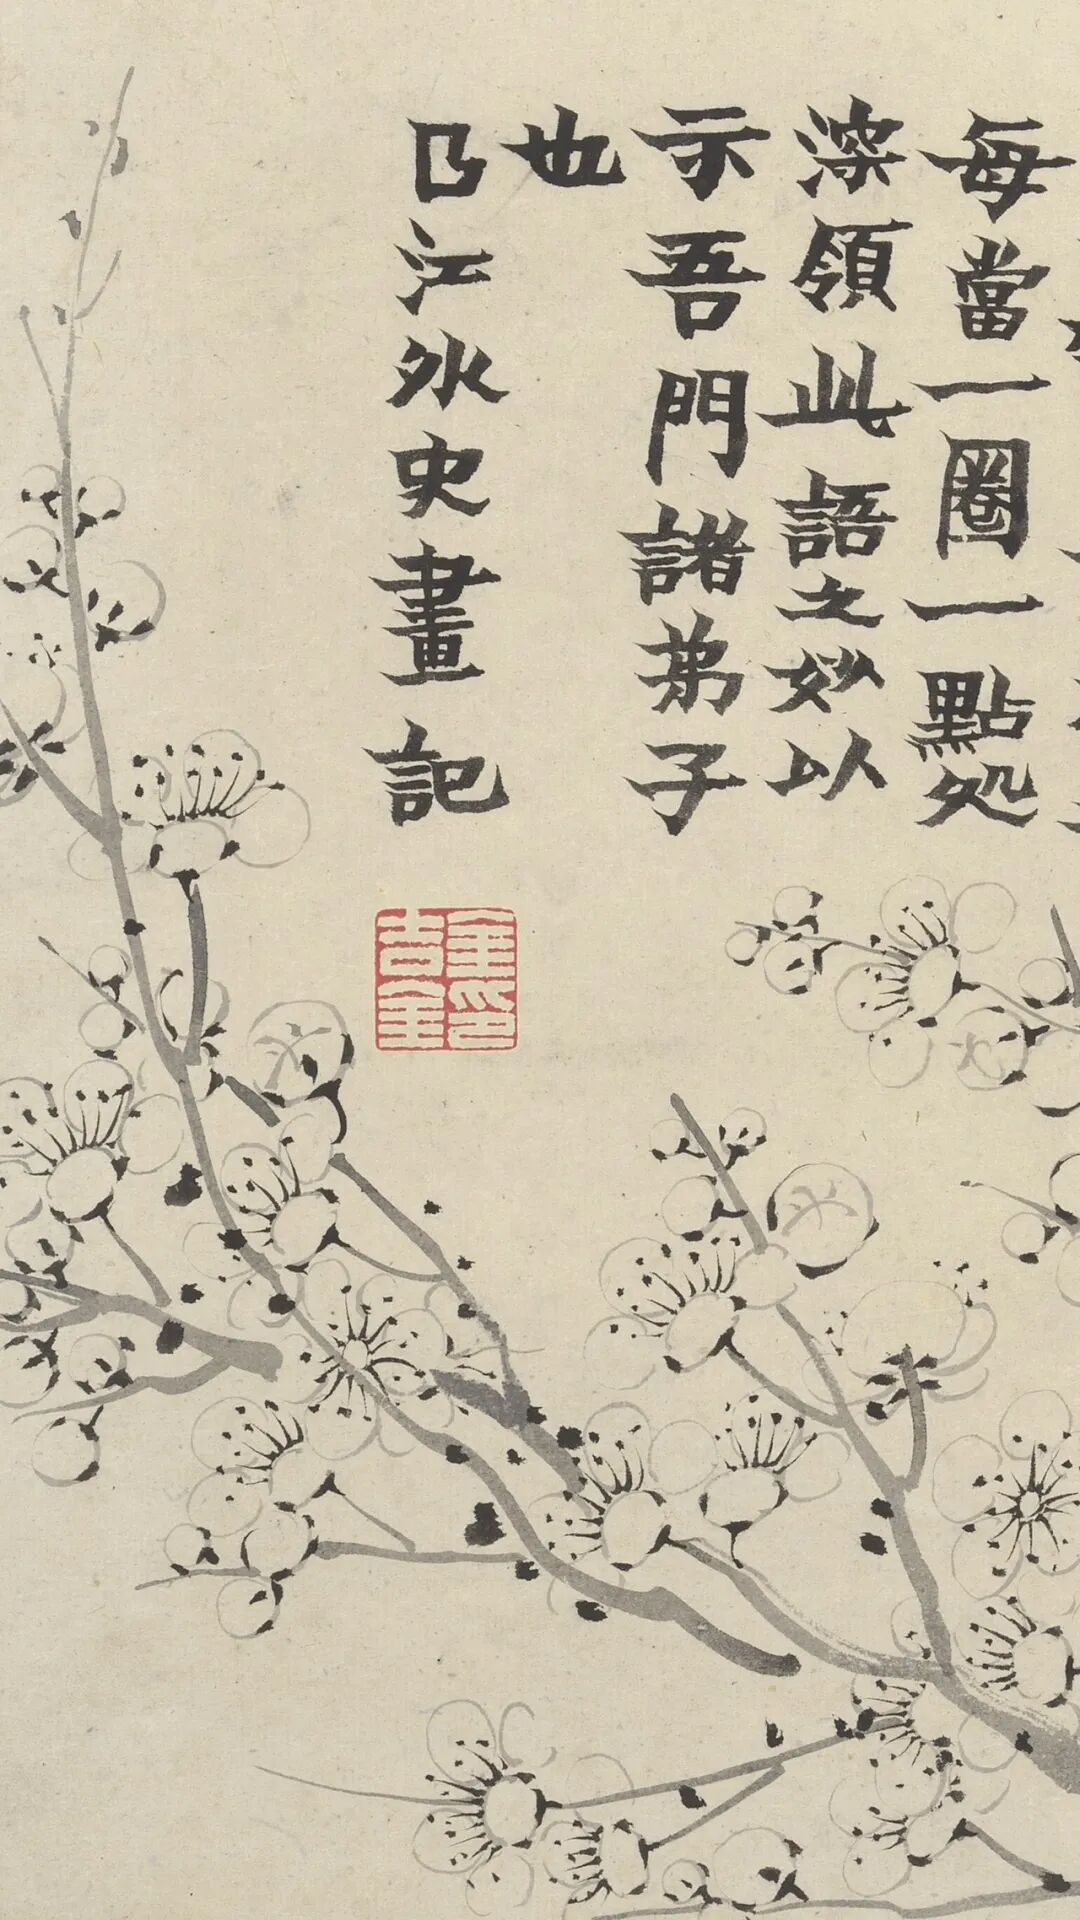 每當一圈一點処
深領此語之妙以
示吾門諸弟子
也
曲江外史畫記
金吉金印